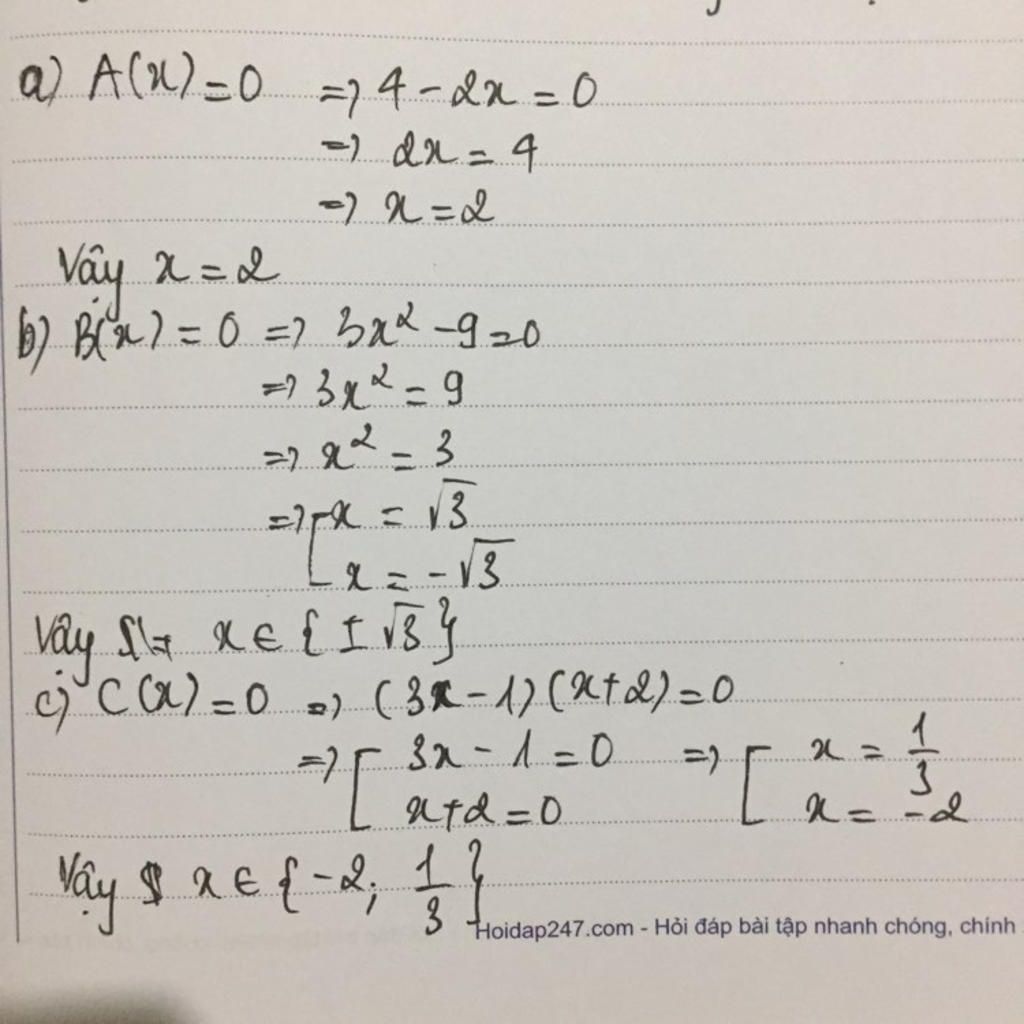 a) A(x) = 0 => 4 - 2x = 0
=> 2x = 4
=> x = 2
Vậy x = 2
b) B(x) = 0 => 3x² - 9 = 0
=> 3x² = 9
=> x² = 3
=> [ x = √3
x = -√3
Vậy x ∈ {±√3}
c) C(x) = 0 => (3x - 1)(x + 2) = 0
=> [ 3x - 1 = 0 => [ x = 1/3
x + 2 = 0 x = -2
Vậy x ∈ {-2; 1/3}
Hoidap247.com - Hỏi đáp bài tập nhanh chóng, chính